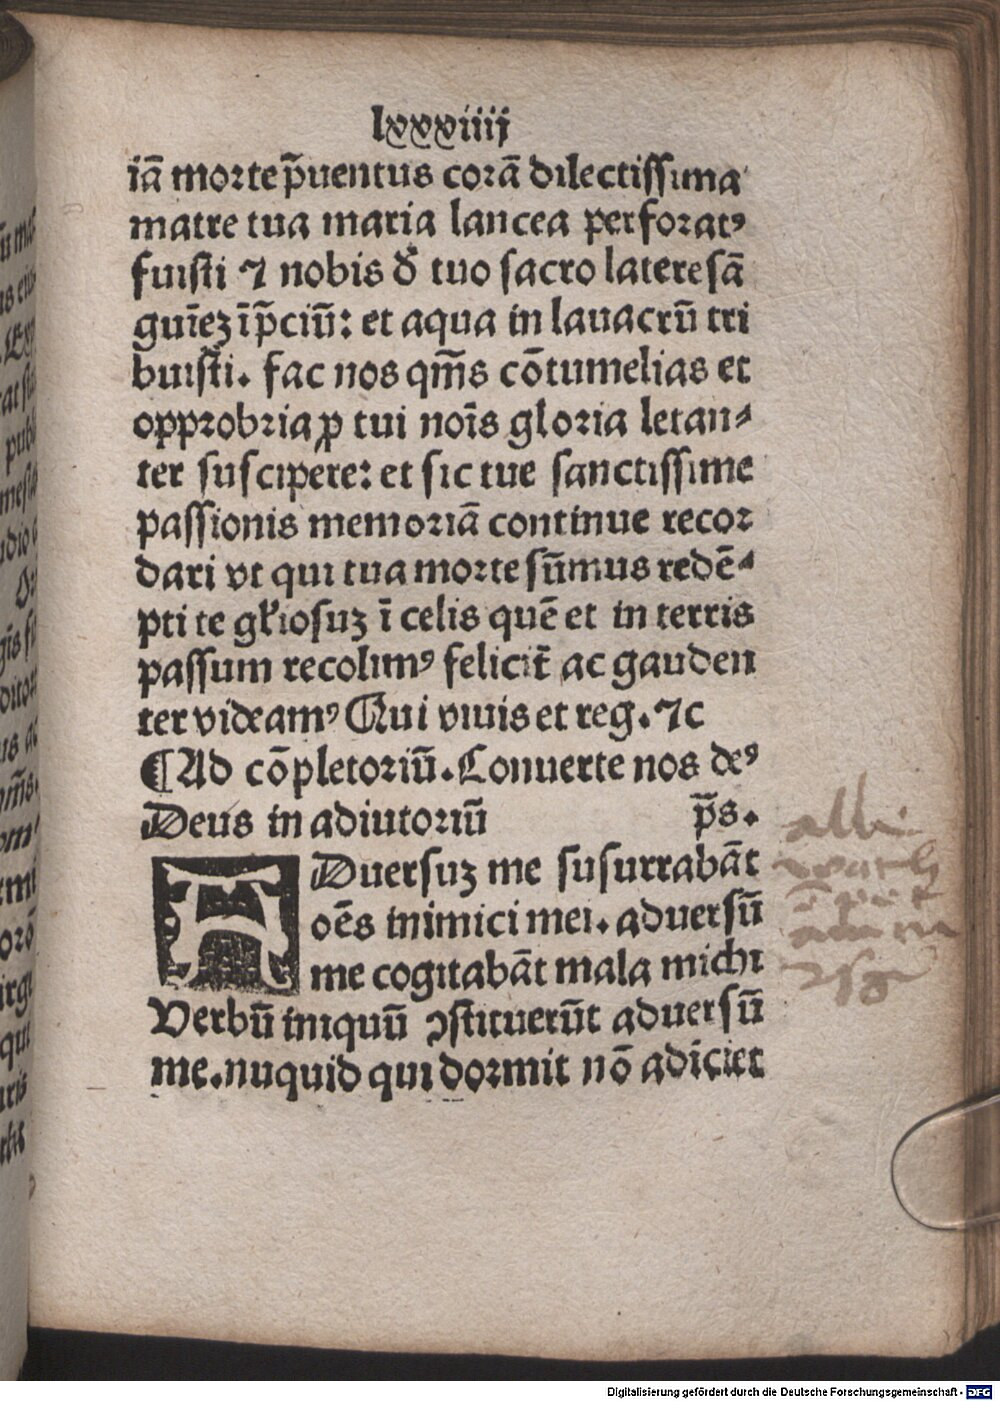 lxxxiiij
iā morte p̄uentus corā dilectissima
matre tua maria lancea perforatꝰ
fuisti ⁊ nobis d̄ tuo sacro latere sā
guīeꝫ ī p̄ciū: et aqua in lauacrū tri
buisti. fac nos qm̄s cōtumelias et
opprobria ꝓ tui noīs gloria letan⸗
ter suscipere: et sic tue sanctissime
passionis memoriā continue recor
dari vt qui tua morte sūmus redē⸗
pti te gl̄iosuꝫ ī celis quē et in terris
passum recolimꝰ felicit̄ ac gauden
ter videamꝰ Qui viuis et reg. ⁊c
¶ Ad cōpletoriū. Conuerte nos deꝰ
Deus in adiutoriū p̄s.
ADuersuꝫ me susurrabāt
oēs inimici mei. aduersū
me cogitabāt mala michi
Verbū iniquū ꝯstituerūt aduersū
me. nuquid qui dormit nō adiciet
Digitalisierung gefördert durch die Deutsche Forschungsgemeinschaft - DFG